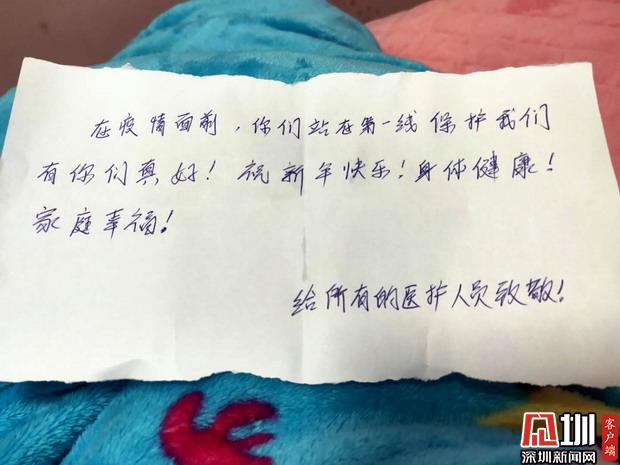 在疫情面前，你们站在第一线保护我们
有你们真好！祝新年快乐！身体健康！
家庭幸福！
给所有的医护人员致敬！
深圳
客户端
深圳新闻网